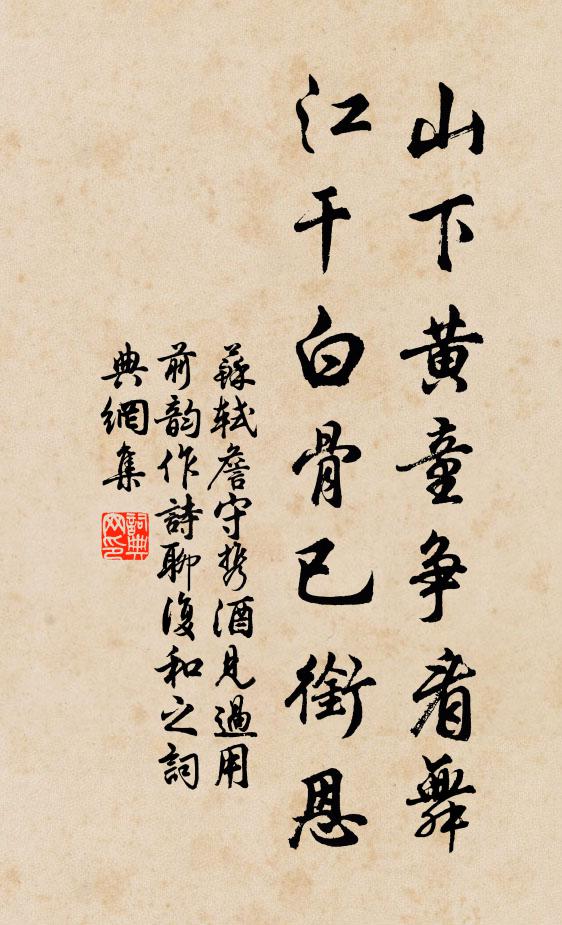 山下黃童争看舞
江干白骨已銜恩
蘇軾詹守携酒見過用
前韵作詩聊復和之詞
典網集
詞典
网印